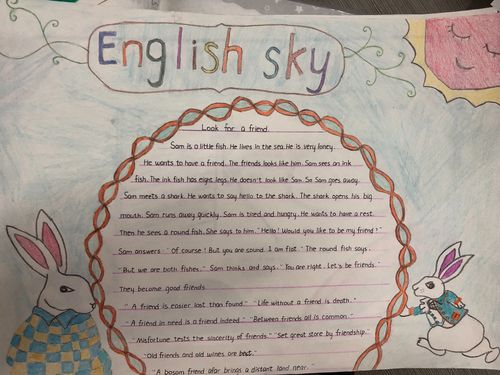 English sky
Look for a friend.
Sam is a little fish. He lives in the sea. He is very loney.
He wants to have a friend. The friends looks like him. Sam sees an ink
fish. The ink fish has eight legs. He doesn't look like Sam. So Sam goes away.
Sam meets a shark. He wants to say hello to the shark. The shark opens his big
mouth. Sam runs away quickly. Sam is tired and hungry. He wants to have a rest.
Then he sees a round fish. She says to him." Hello! Would you like to be my friend?"
Sam answers " Of course! But you are sound. I am flat." The round fish says.
"But we are both fishes." Sam thinks and says." You are right. Let's be friends."
They become good friends.
" A friend is easier lost than found." "Life without a friend is death."
"A friend in need is a friend indeed." "Between friends all is common."
"Misfortune tests the sincerity of friends." "Set great store by friendship."
"Old friends and old wines are best."
"A bosom friend afar brings a distant land near."